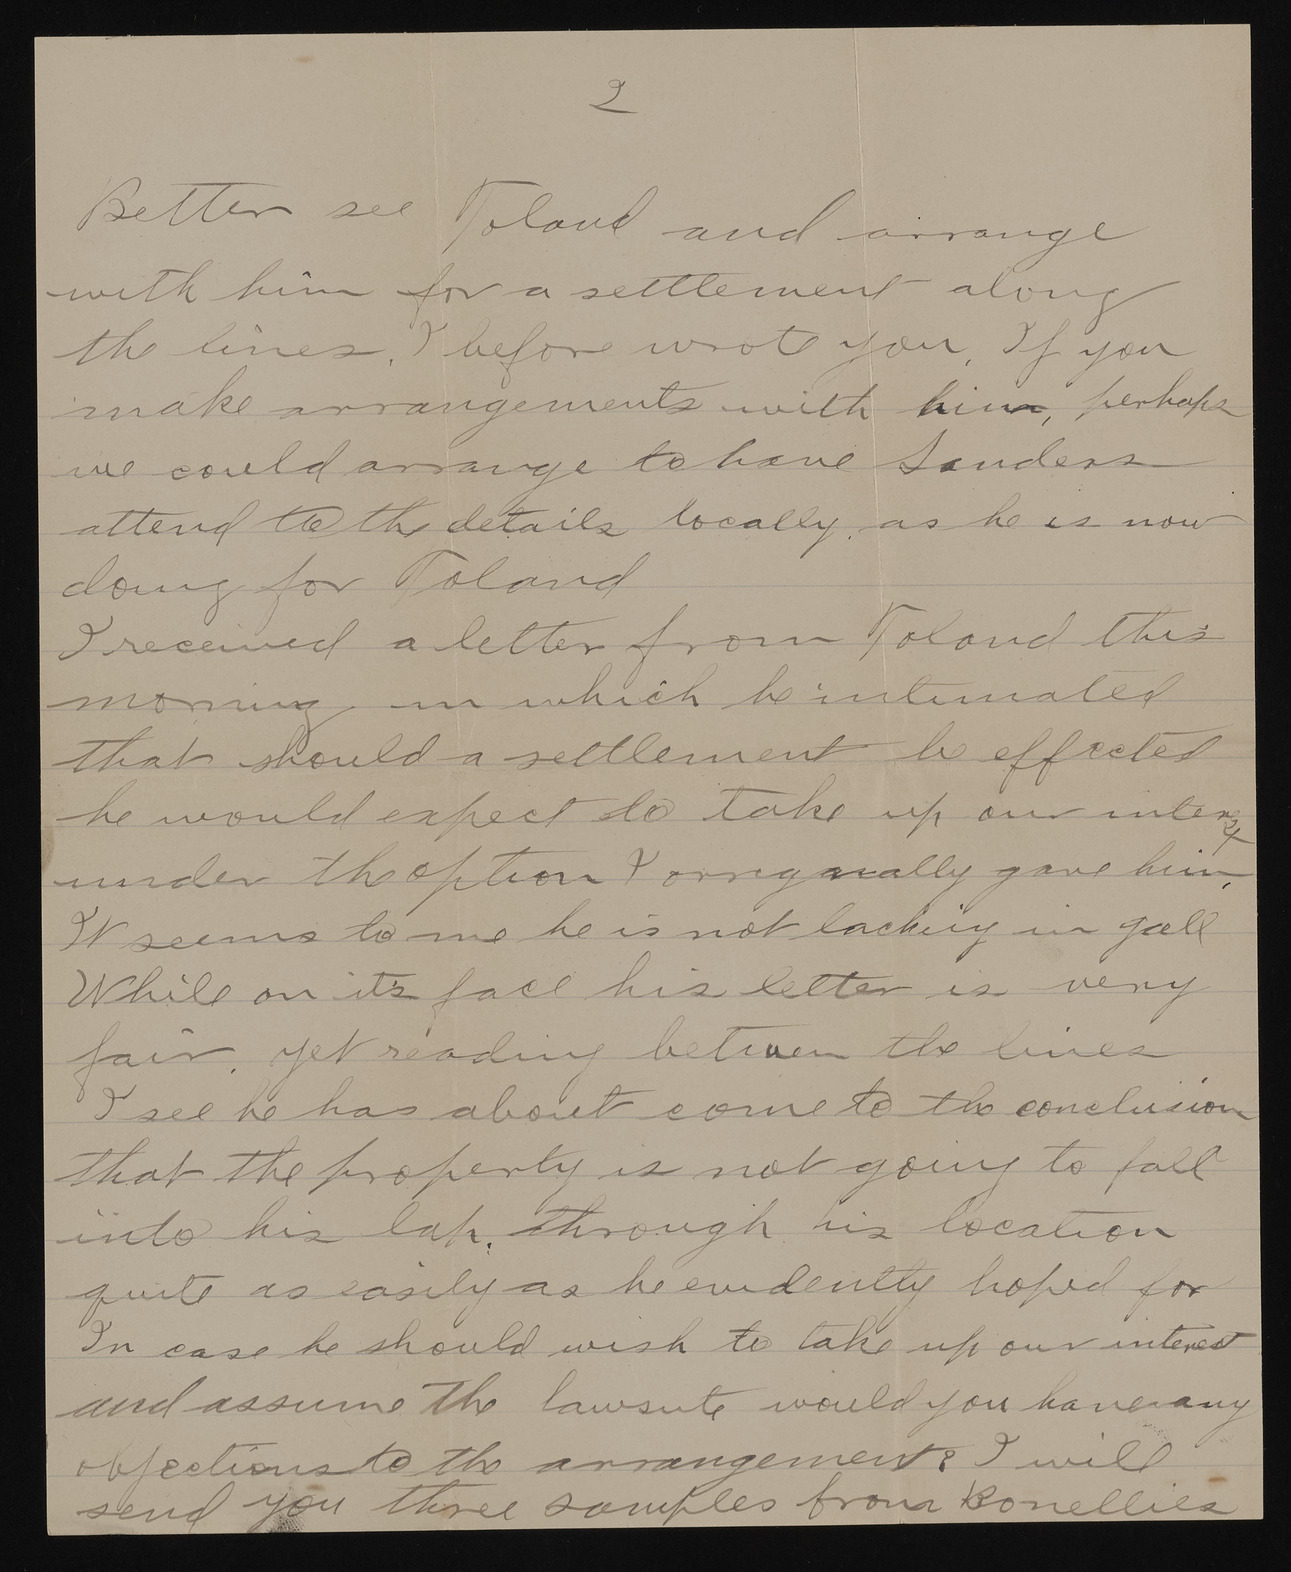 2
Better see Toland and arrange
with him for a settlement along
the lines, I before wrote you, If you
make arrangements with him, perhaps
we could arrange to have Sanders
attend to the details locally, as he is now
doing for Toland
I received a letter from Toland this
morning, in which he intimated
that should a settlement be effected
he would expect to take up our interest
under the option I orriganally gave him,
It seems to me he is not lacking in gall
While on it's face his letter is very
fair, yet reading between the lines
I see he has about come to the conclusion
that the property is not going to fall
into his lap, through his location
quite as easily as he evidently hoped for
In case he should wish to take up our interest
and assume the lawsute would you have any
objections to the arrangement? I will
send you three samples from Bonellies